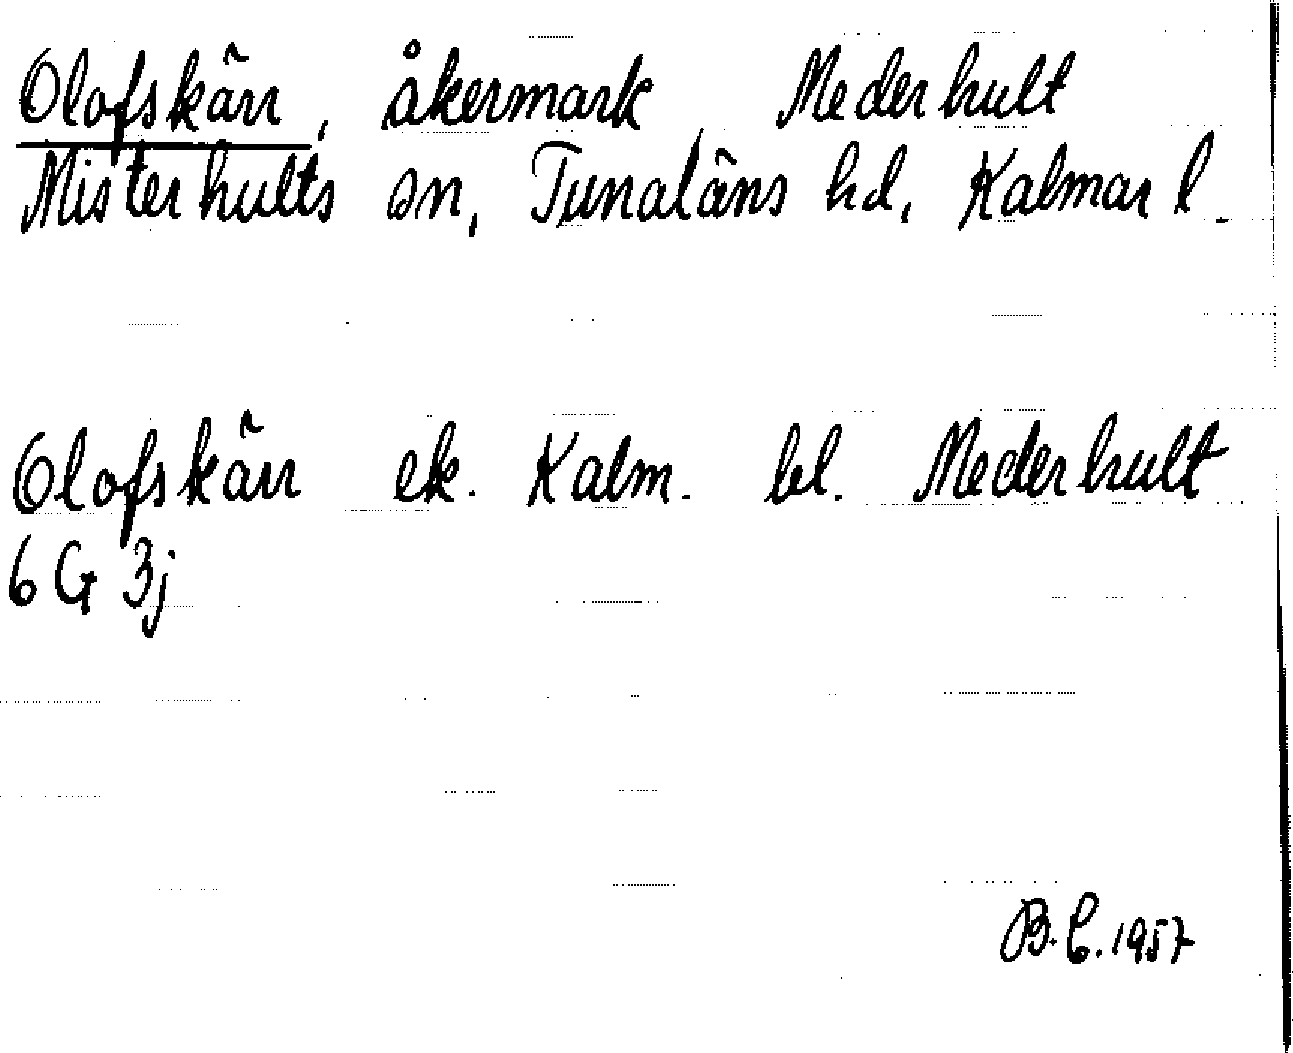 Olofskärr, åkermark Mederhult
Misterhults sn, Tunaläns hd, Kalmar l.
Olofskärr ek. Kalm. bl. Mederhult
6 G 3j
B. C. 1957